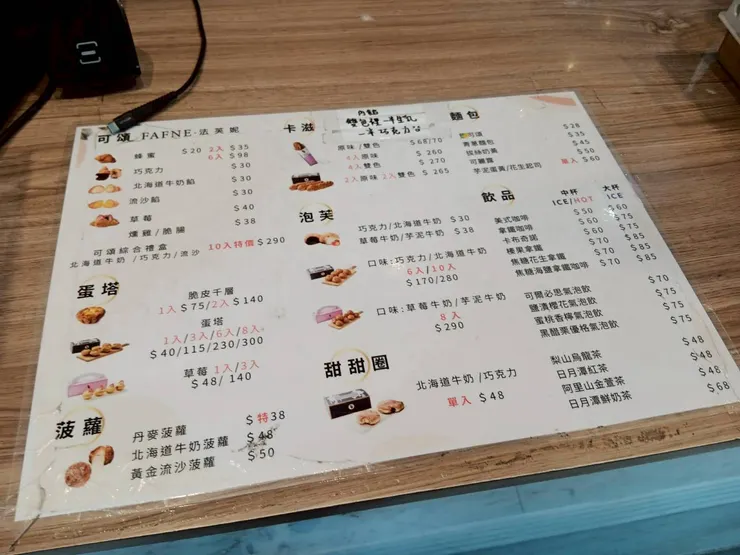 可頌 FAFNE·法芙妮
蜂蜜 $20 2入 $35
6入 $98
巧克力 $30
北海道牛奶餡 $30
流沙餡 $30
草莓 $40
燻雞/脆腸 $38
可頌綜合禮盒 10入特價 $290
北海道牛奶/巧克力/流沙
蛋塔
脆皮千層
1入 $75/2入 $140
蛋塔
1入/3入/6入/8入
$40/115/230/300
草莓 1入/3入
$48/ 140
菠蘿
丹麥菠蘿 $特38
北海道牛奶菠蘿 $48
黃金流沙菠蘿 $50
卡滋
內餡
雙色裡一半牛乳
一半巧克力
原味/雙色 $68/70
4入原味 $260
4入雙色 $270
2入原味 2入雙色 $265
泡芙
巧克力/北海道牛奶 $30
草莓牛奶/芋泥牛奶 $38
口味:巧克力/北海道牛奶
6入/10入
$170/280
口味:草莓牛奶/芋泥牛奶
8入
$290
甜甜圈
北海道牛奶/巧克力
單入 $48
麵包
可頌 $28
青蔥麵包 $35
侯絲奶黃 $45
可麗露 $50
芋泥蛋黃/花生起司 單入 $60
飲品
中杯 大杯
ICE/HOT ICE
美式咖啡 $50 $60
拿鐵咖啡 $60 $75
卡布奇諾 $60 $75
榛果拿鐵 $70 $85
焦糖花生拿鐵 $70 $85
焦糖海鹽拿鐵咖啡 $70 $85
可爾必思氣泡飲 $70
鹽漬櫻花氣泡飲 $75
蜜桃香檸氣泡飲 $75
黑醋栗優格氣泡飲 $75
梨山烏龍茶 $48
日月潭紅茶 $48
阿里山金萱茶 $48
日月潭鮮奶茶 $68